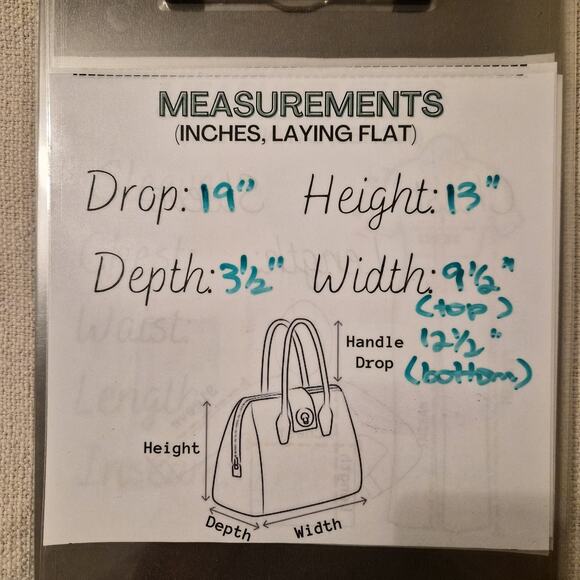 MEASUREMENTS
(INCHES, LAYING FLAT)
Drop: 19" Height: 13"
Depth: 3½" Width: 9½"
(top)
12½"
(bottom)
Handle
Drop
Height
Depth
Width
Waist:
Length: